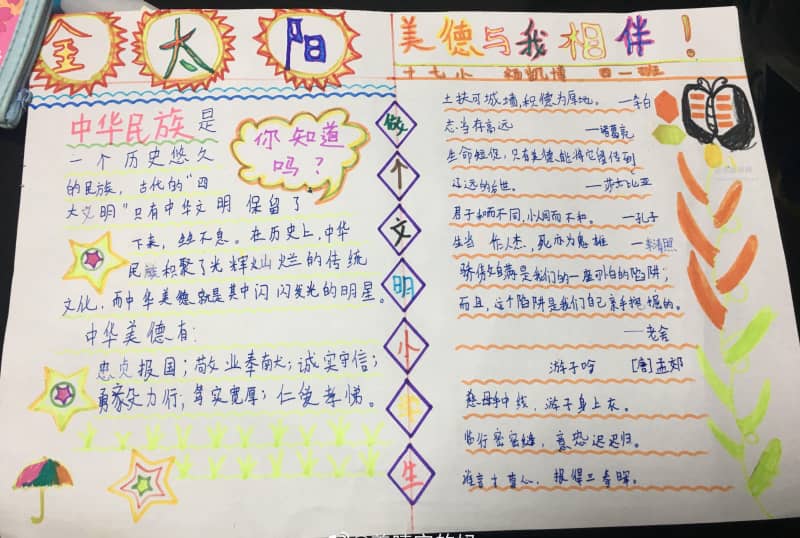 金太阳
美德与我相伴！
十七小 杨凯博 四一班
中华民族是
一个历史悠久
的民族，古代的“四
大文明”只有中华文明保留了
下来，丝丝不息。在历史上，中华
民族积聚了光辉灿烂的传统
文化，而中华美德就是其中闪闪发光的明星。
中华美德有：
忠贞报国；敬业奉献；诚实守信；
勇毅力行；笃实宽厚；仁爱孝悌。
你知道
吗？
做
个
文
明
小
学
生
土扶可城墙，积德为厚地。 —李白
志当存高远 —诸葛亮
生命短促，只有美德能将它留传到
辽远的后世。 —莎士比亚
君子和而不同，小人同而不和。 —孔子
生当作人杰，死亦为鬼雄 —李清照
骄傲自满是我们的一座可怕的陷阱；
而且，这个陷阱是我们自己亲手挖掘的。
—老舍
游子吟 [唐]孟郊
慈母手中线，游子身上衣。
临行密密缝，意恐迟迟归。
谁言寸草心，报得三春晖。